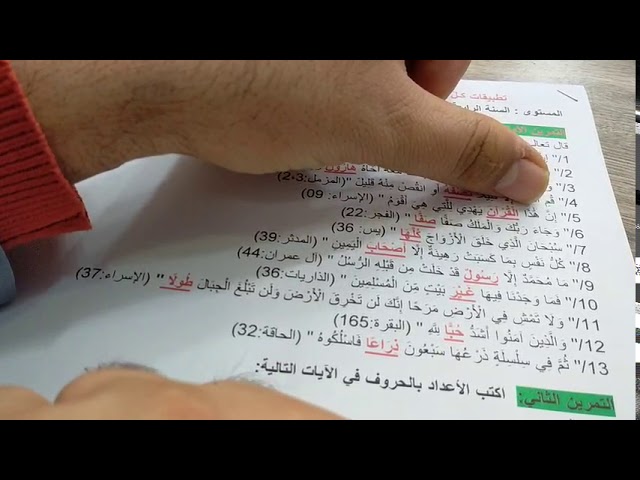 تطبيقات
المستوى : السنة الرابع
التمرين
قال تعالى
1/"
2/" أَخَاهُ هَارُونَ
3/" و
4/" قُمِ نِصْفَهُ أَوِ انْقُصْ مِنْهُ قَلِيلًا " (المزمل:2،3)
5/" إِنَّ هَذَا الْقُرْآنَ يَهْدِي لِلَّتِي هِيَ أَقْوَمُ " (الإسراء: 09)
6/" وَجَاءَ رَبُّكَ وَالْمَلَكُ صَفًّا صَفًّا " (الفجر:22)
7/" سُبْحَانَ الَّذِي خَلَقَ الْأَزْوَاجَ كُلَّهَا " (يس: 36)
8/" كُلُّ نَفْسٍ بِمَا كَسَبَتْ رَهِينَةٌ إِلَّا أَصْحَابَ الْيَمِينِ " (المدثر:39)
9/" مَا مُحَمَّدٌ إِلَّا رَسُولٌ قَدْ خَلَتْ مِن قَبْلِهِ الرُّسُلُ " (ال عمران:44)
10/" فَمَا وَجَدْنَا فِيهَا غَيْرَ بَيْتٍ مِّنَ الْمُسْلِمِينَ " (الذاريات:36)
11/" وَلَا تَمْشِ فِي الْأَرْضِ مَرَحًا إِنَّكَ لَن تَخْرِقَ الْأَرْضَ وَلَن تَبْلُغَ الْجِبَالَ طُولًا " (الإسراء:37)
12/" وَالَّذِينَ آمَنُوا أَشَدُّ حُبًّا لِلَّهِ " (البقرة:165)
13/" ثُمَّ فِي سِلْسِلَةٍ ذَرْعُهَا سَبْعُونَ ذِرَاعًا فَاسْلُكُوهُ " (الحاقة:32)
التمرين الثاني: اكتب الأعداد بالحروف في الآيات التالية: